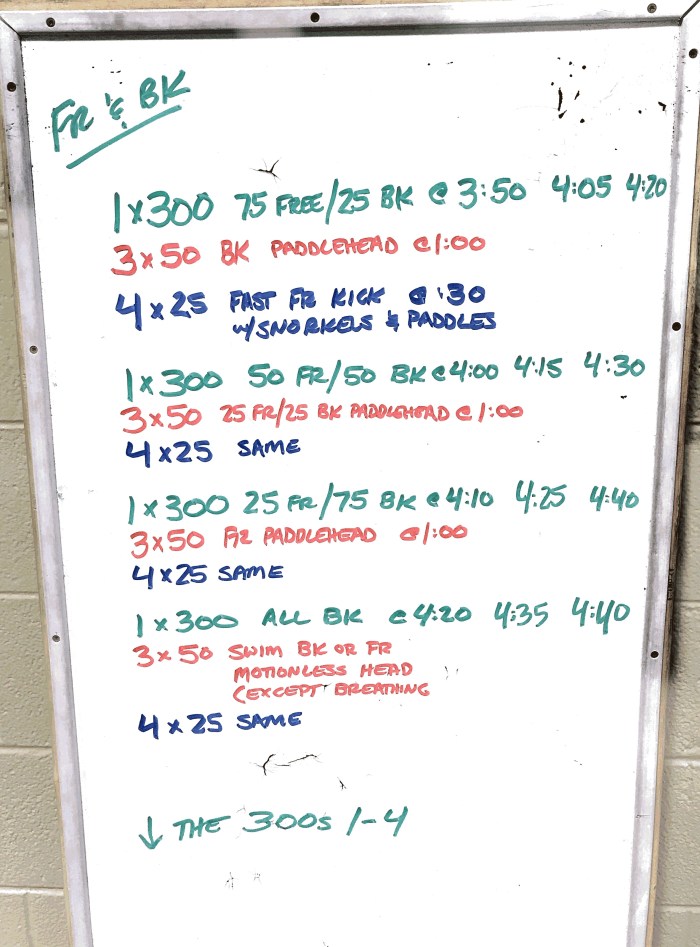 FR & BK
1x300 75 FREE/25 BK @ 3:50 4:05 4:20
3x50 BK PADDLEHEAD @ 1:00
4x25 FAST FR KICK @ :30
w/SNORKELS & PADDLES
1x300 50 FR/50 BK @ 4:00 4:15 4:30
3x50 25 FR/25 BK PADDLEHEAD @ 1:00
4x25 SAME
1x300 25 FR/75 BK @ 4:10 4:25 4:40
3x50 FR PADDLEHEAD @ 1:00
4x25 SAME
1x300 ALL BK @ 4:20 4:35 4:40
3x50 SWIM BK OR FR
MOTIONLESS HEAD
(EXCEPT BREATHING
4x25 SAME
↓ THE 300s 1-4